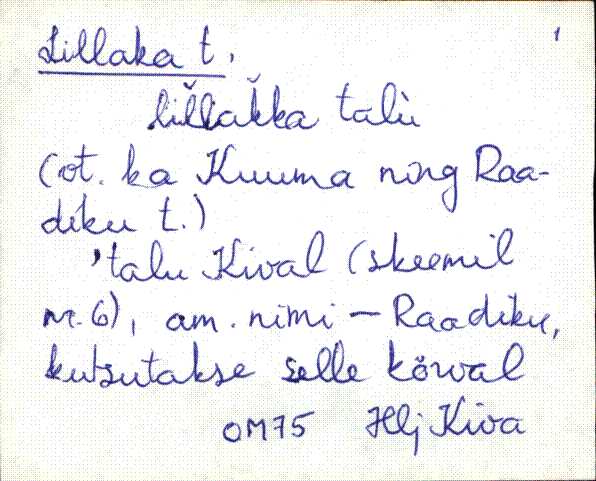 Lillaka t. 1
lĭllak̆ka talù
(ot. ka Kuuma ning Raa-
diku t.)
'talu Kival (skeemil
nr. 6), am. nimi – Raadiku,
kutsutakse selle kõrval
OM75 Hlj Kiva